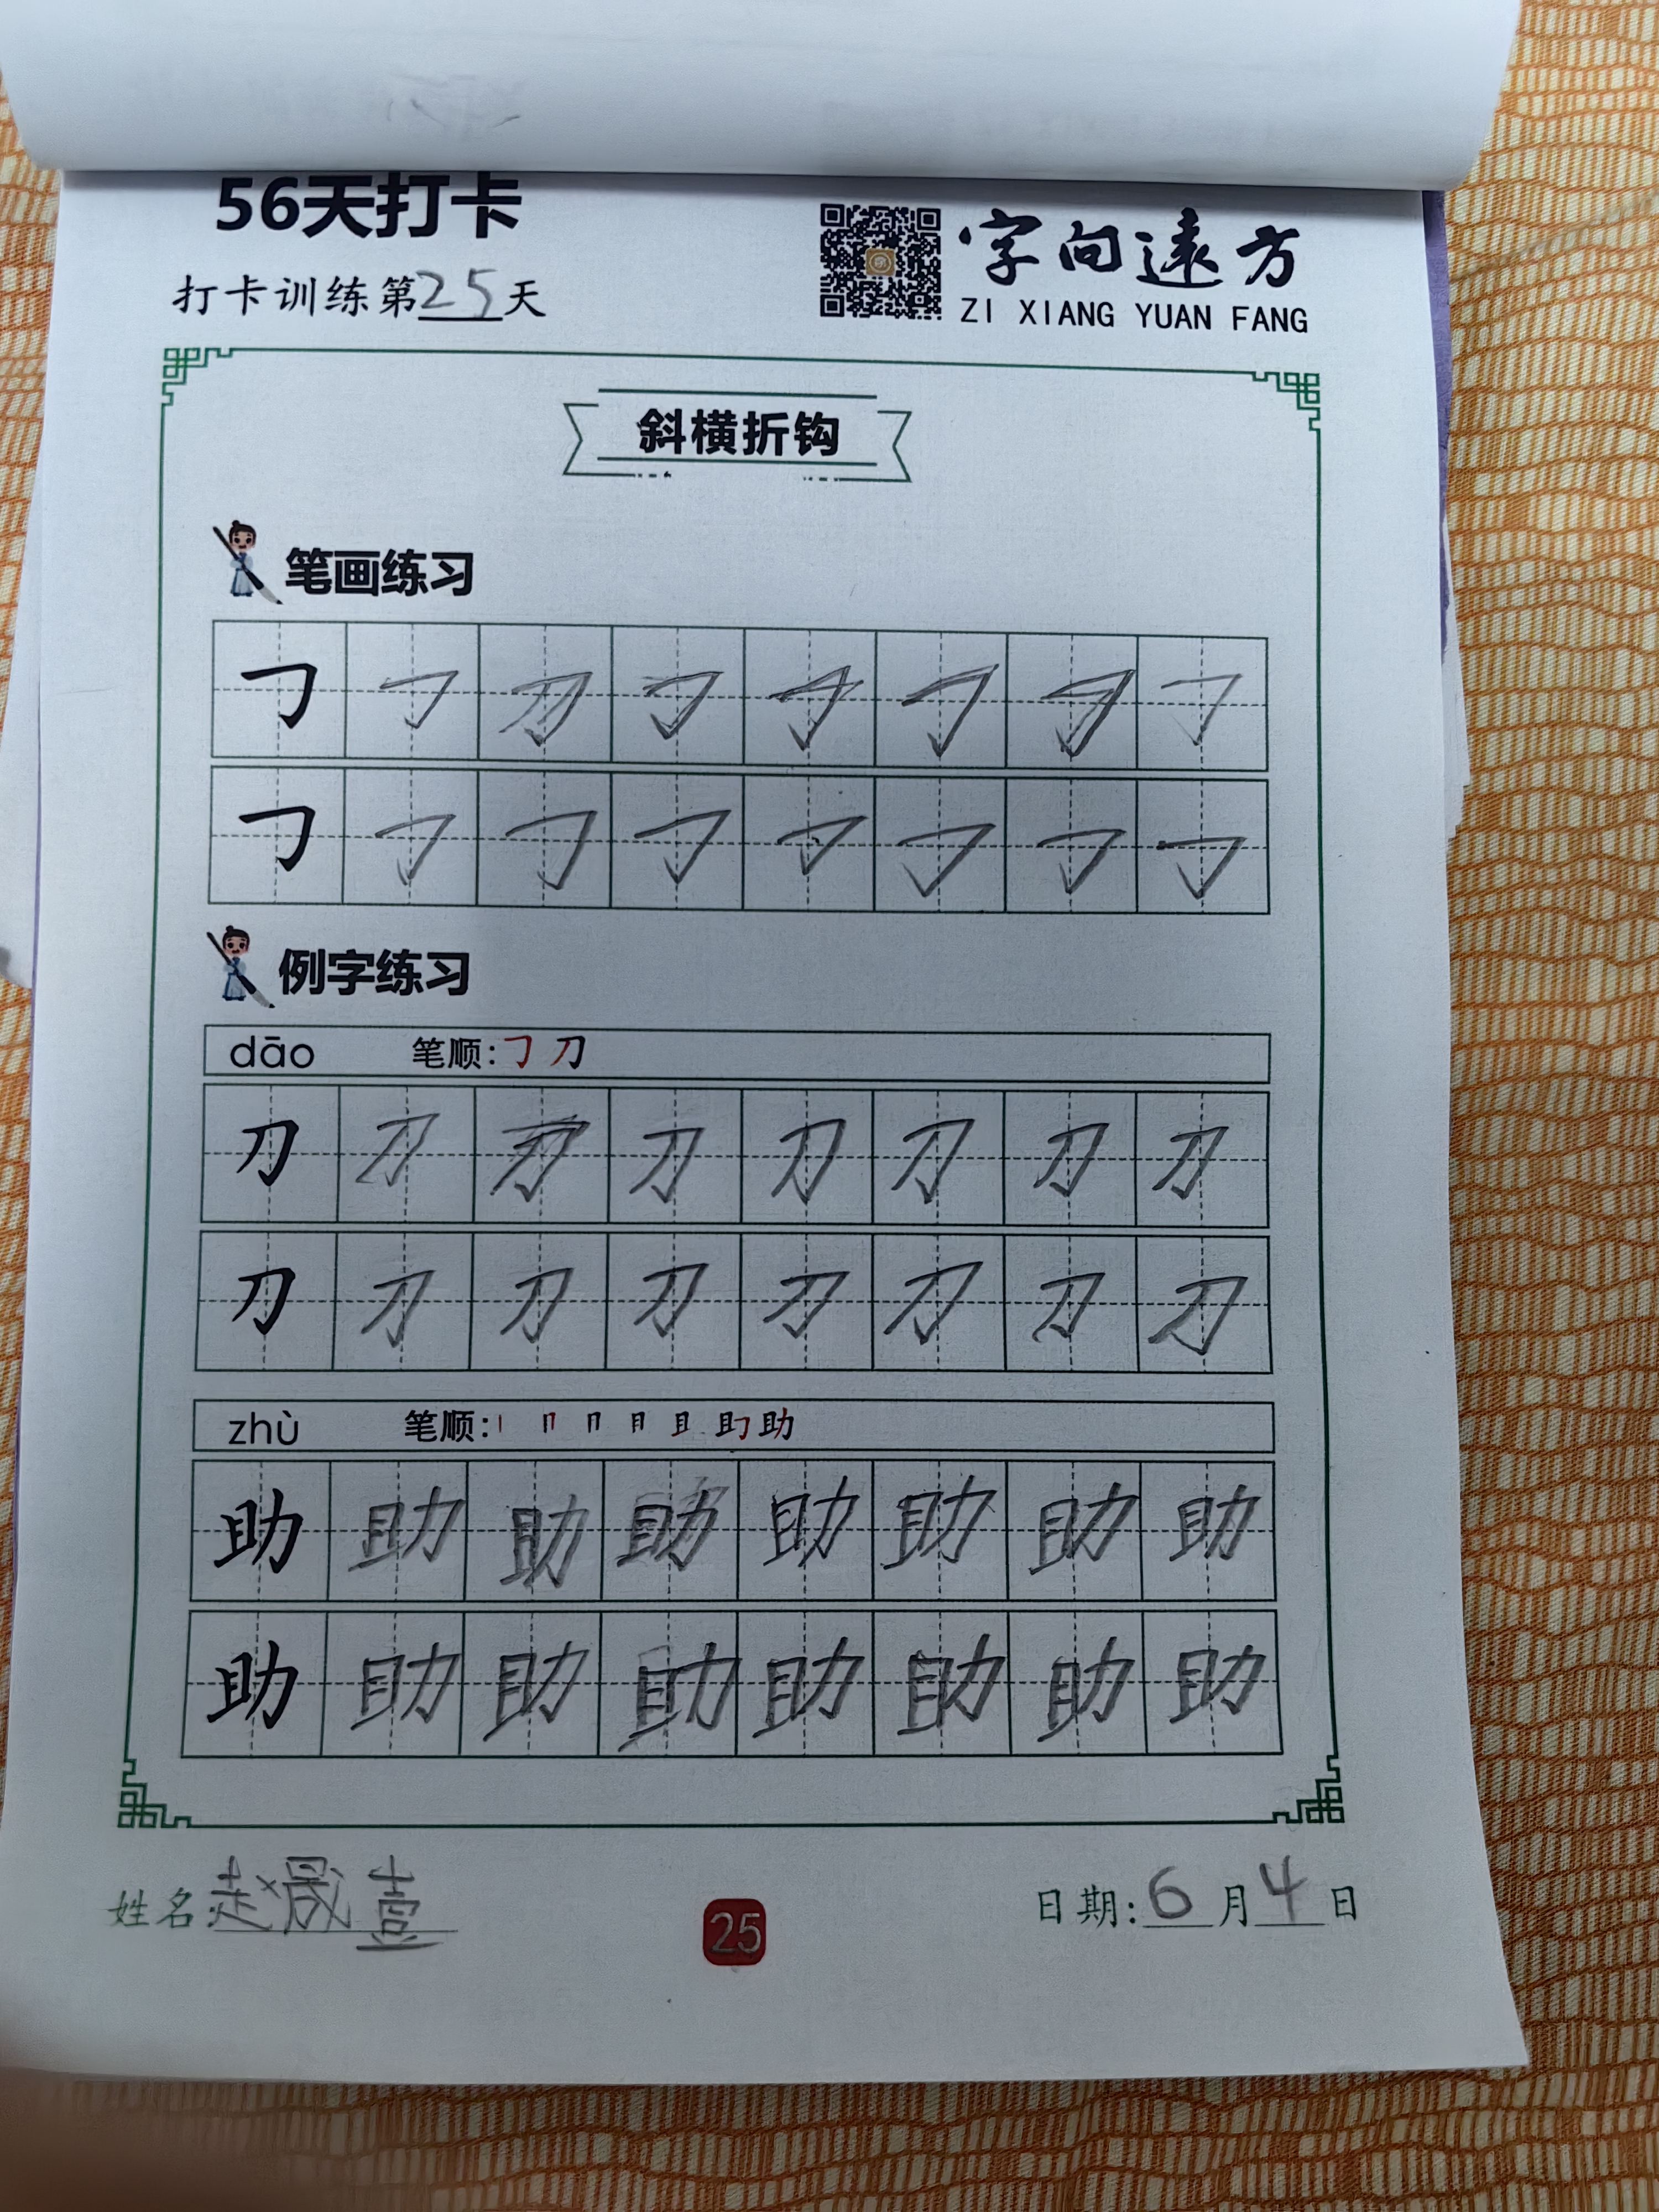 56天打卡
字向遠方
打卡训练第25天
ZI XIANG YUAN FANG
斜横折钩
笔画练习
㇆ ㇆ ㇆ ㇆ ㇆ ㇆ ㇆ ㇆
㇆ ㇆ ㇆ ㇆ ㇆ ㇆ ㇆ ㇆
例字练习
dāo 笔顺:㇆ 刀
刀 刀 刀 刀 刀 刀 刀 刀
刀 刀 刀 刀 刀 刀 刀 刀
zhù 笔顺: 助
助 助 助 助 助 助 助 助
助 助 助 助 助 助 助 助
姓名:赵晟壹
25
日期:6月4日